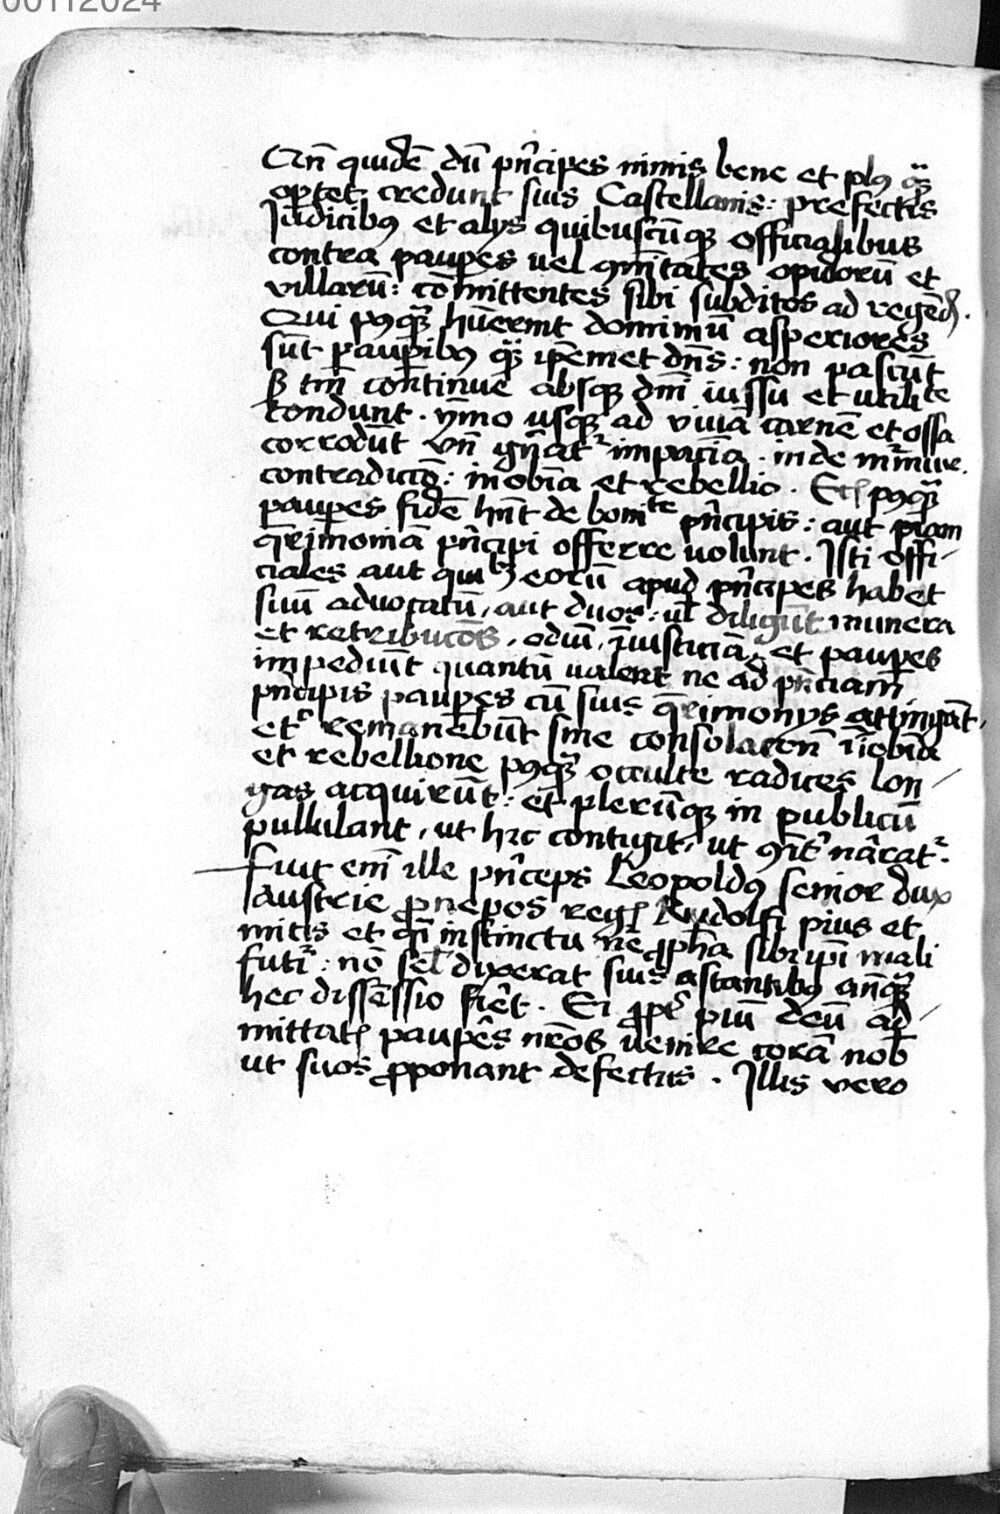 00112024
Qn̄ quidē dū pn̄cipes nimis bene et plꝰ qͣ̄
optet credunt suis Castellanis: prefectis
Judicibꝰ et alys quibuscūqꝫ officialibus
contra paupes uel ꝯm̄itates opidorū et
villarū: cōmittentes sibi subditos ad regēd
Qui pꝰqͣꝫ huerint dominiū asperiores
sūt paup̄ibꝰ qͣꝫ ip̄emet dn̄s: non pascūt
ß tm̄ continue absqꝫ dn̄i iussu et utilite
tondunt. ymo usqꝫ ad viuā carnē et ossa
corrodūt Vn̄ gn̄atʳ impacīa. inde mʳmure.
contradictō: inobīa et rebellio. Et pꝰqͣꝫ
paupes fidē hn̄t de bonite pn̄cipis: aut p̄iam
qrimoniā pn̄cipi offerre uolunt. Isti offi
ciales aut quilꝫ eorū apud pn̄cipes habet
suū aduocatū, aut duos: ul̄ diligūt munera
et retribucōs. odiū, iniusticiā, et paupes
impediūt quantū ualent ne ad pn̄ciam
pn̄cipis paupes cū suis qrimonys attingāt,
et remanebūt sine consolacōn īobīa
et rebellione pꝰqͣꝫ occulte radices lon
gas acquirūt: et plerūqꝫ in publicū
pullulant, ut hic contigit, ut ꝯn̄tʳ nār̄atʳ.
Fuit enī ille pn̄ceps Leopoldꝰ senior dux
Austrie pronepos reg Rudolfi pius et
mitis et qͣi instinctu ne ꝓpha sibi ip̄i mali
futʳi: nō sel̄ dixerat suis astantibꝰ an̄qͣꝫ
hec dissessio fiet. Ei ꝓpt̄ piū deū ad
mittat paupes nr̄os uenire corā nob
ut suos ꝓponant defectus. Illis vero